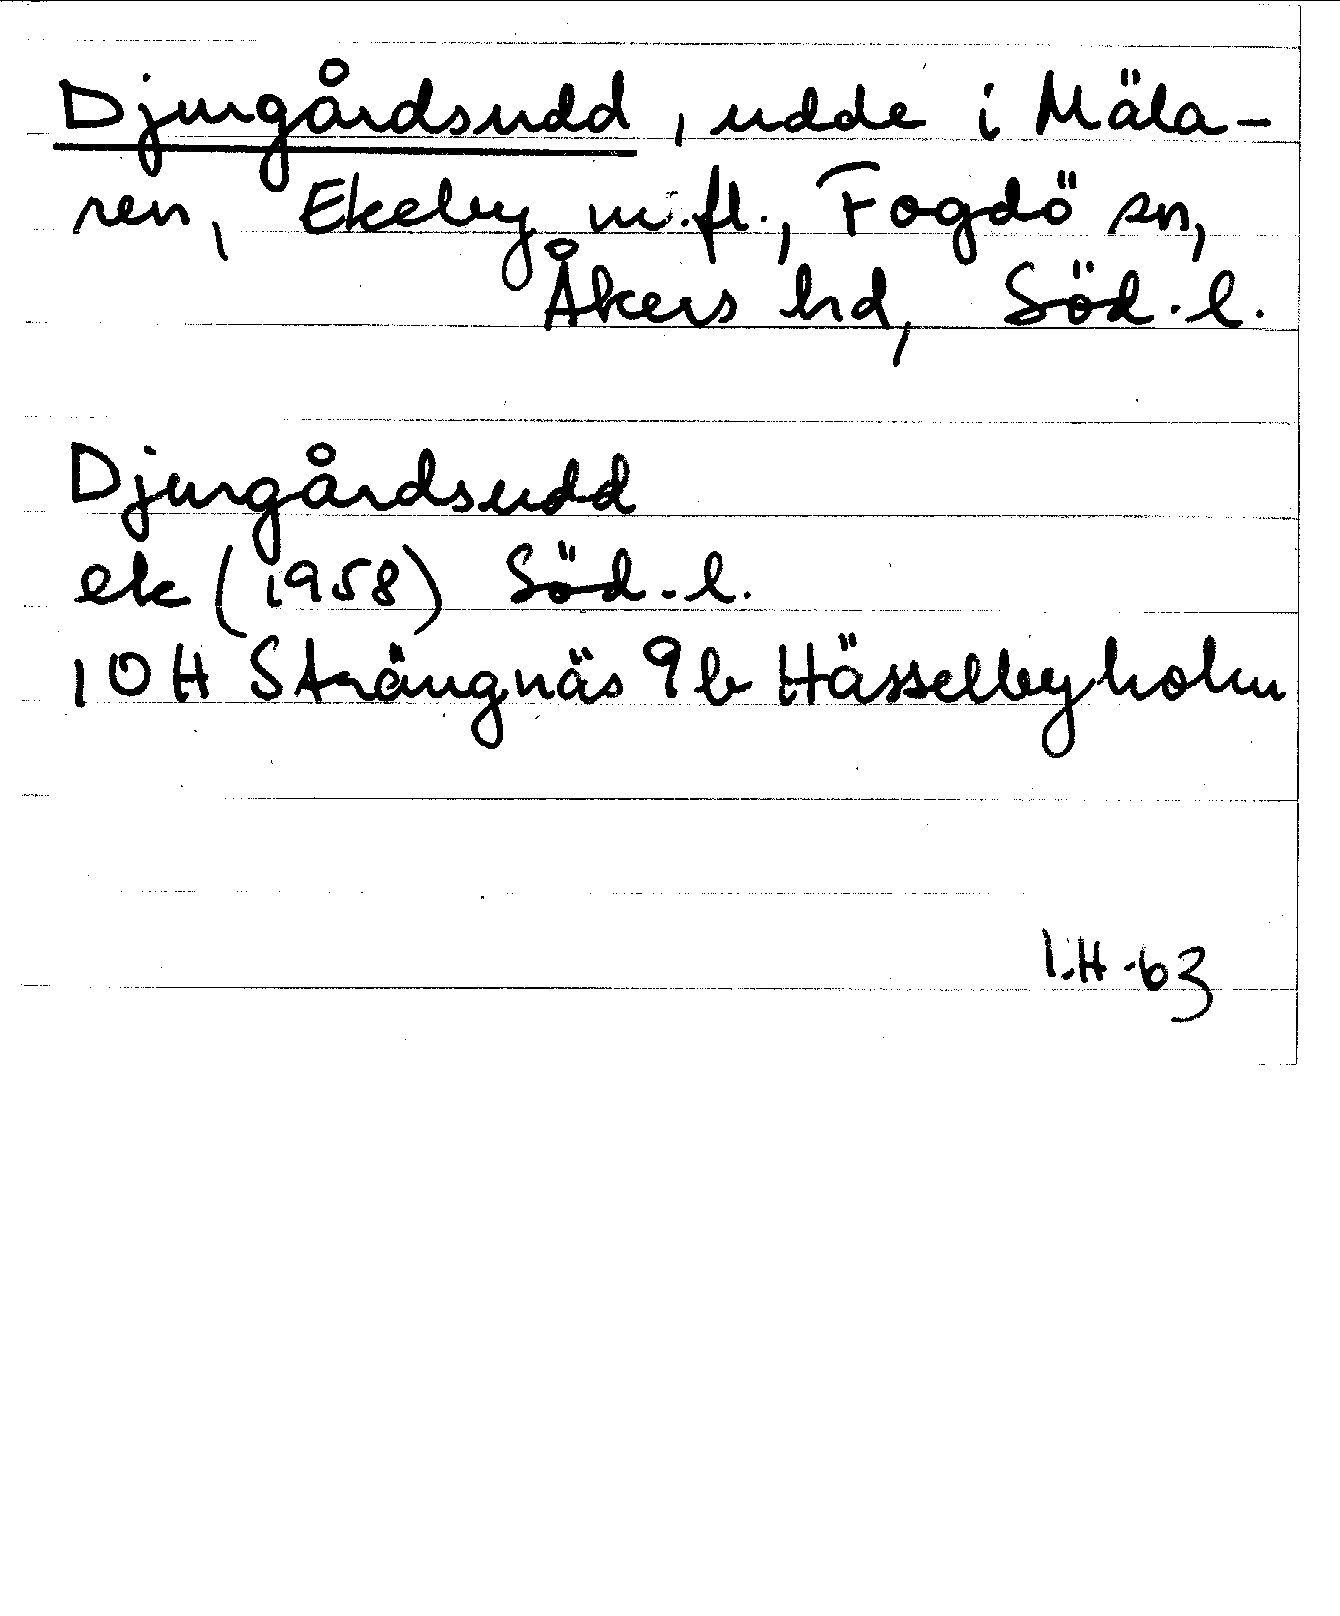 Djurgårdsudd, udde i Mäla-
ren, Ekeby m.fl., Fogdö sn,
Åkers hd, Söd.l.
Djurgårdsudd
ek (1958) Söd.l.
10H Strängnäs 9b Hässelbyholm
I.H -63